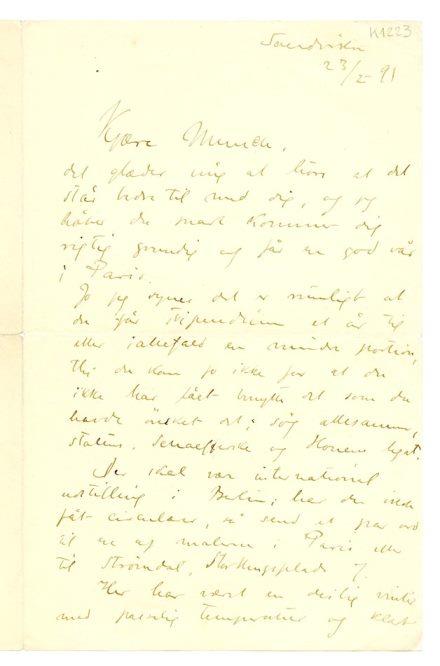 K1223
Sandviken
23/2 91
Kjære Munch,
det glæder mig at høre at det
står bedre til med dig, og jeg
håber du snart kommer dig
rigtig grundig og får en god vår
i Paris.
Jo jeg synes det er rimeligt at
du får stipendium et år til
eller iallefald en mindre portion,
thi du kan jo ikke for at du
ikke har fået benytte det som du
havde ønsket det; søg allesammen,
statens, Schaefferske og Hennes legat.
Der skal være international
udstilling i Berlin; har du ikke
fåt circulære, så send et par ord
til en af malerne i Paris eller
til Strømdal, Stortingsplads 7
Her har været en deilig vinter
med passelig temperatur og klart